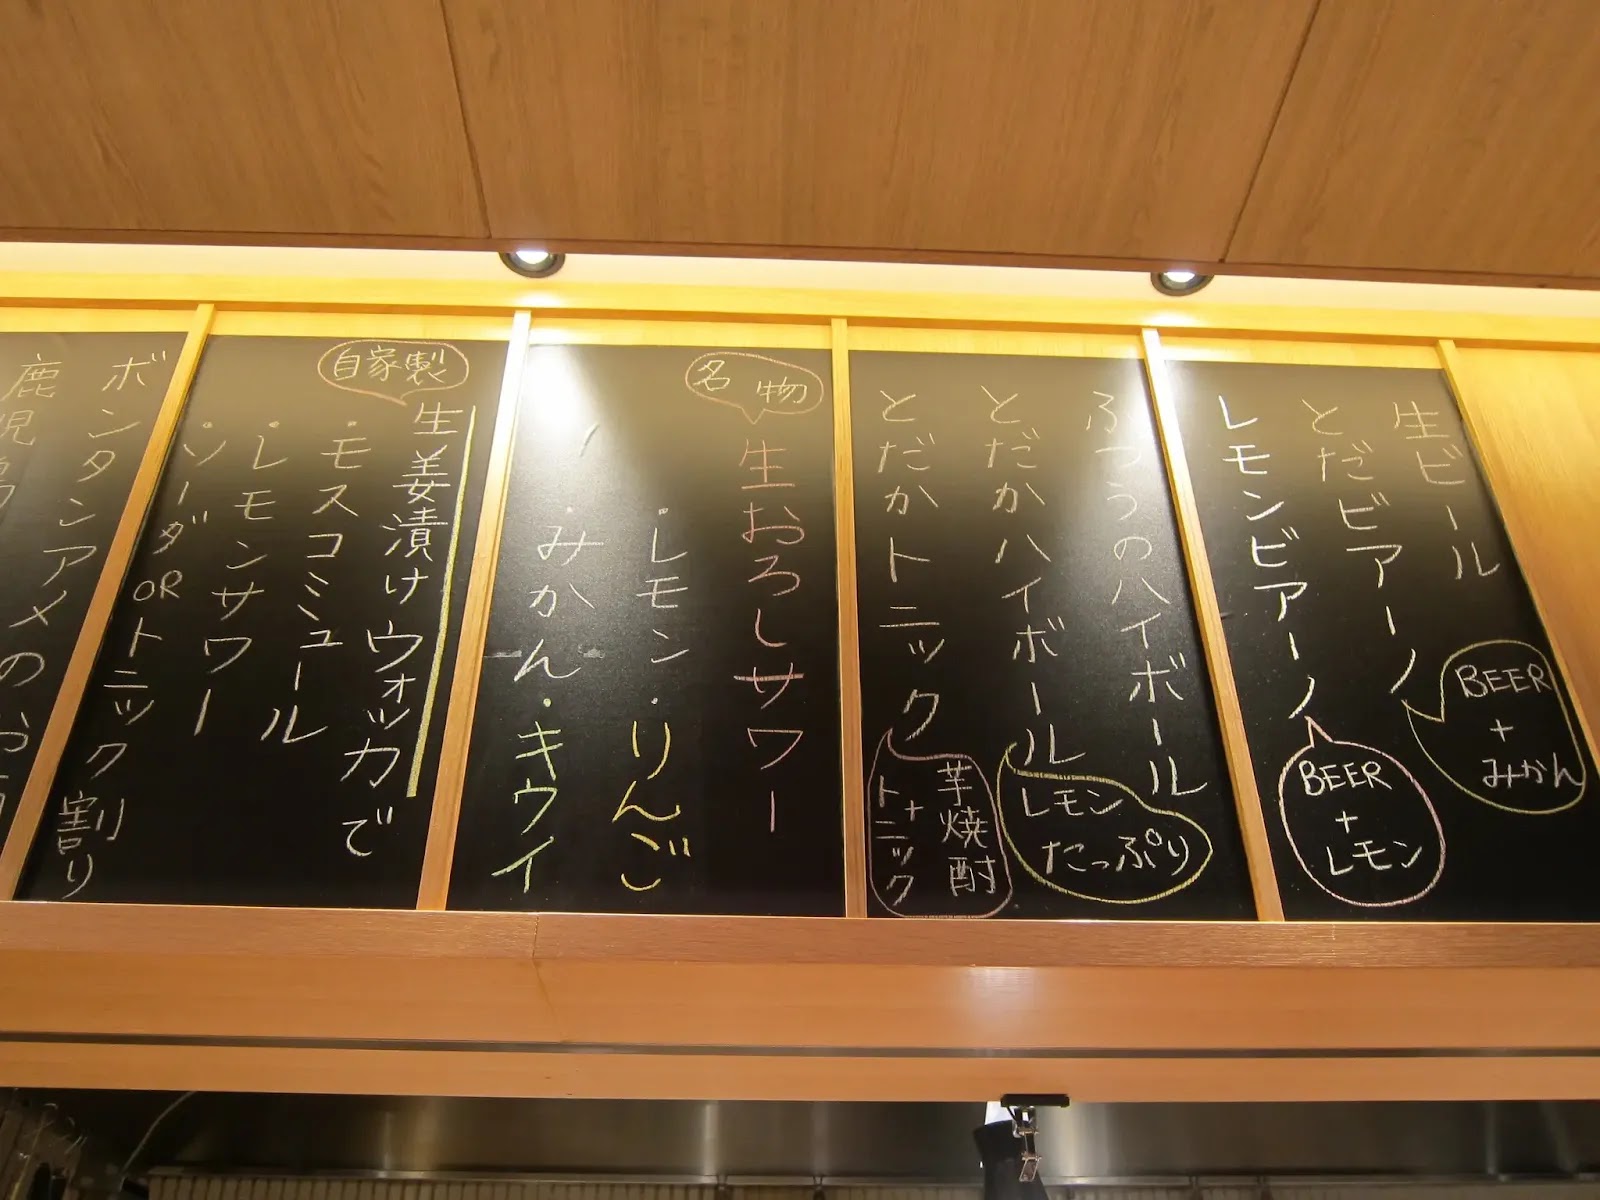 生ビール
とだビアーノ
BEER
+
みかん
レモンビアーノ
BEER
+
レモン
ふつうのハイボール
とだかハイボール
レモン
たっぷり
とだかトニック
芋焼酎
+
トニック
名物
生おろしサワー
・レモン・りんご
・みかん・キウイ
自家製
生姜漬けウォッカで
・モスコミュール
・レモンサワー
・ソーダ OR トニック割り
ボンタンアメのお
鹿児島